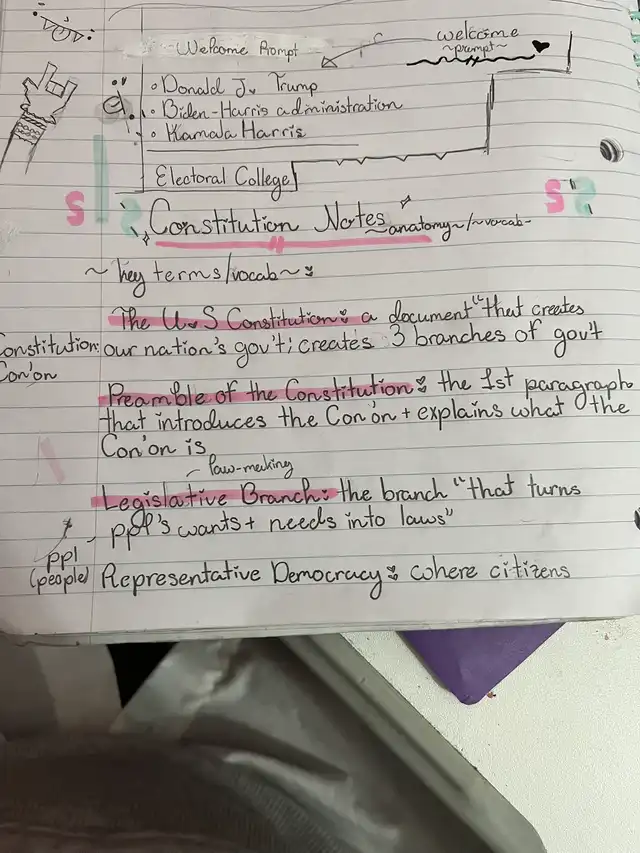 Welcome Prompt
welcome
~prompt~
• Donald J. Trump
• Biden-Harris administration
• Kamala Harris
Electoral College
Constitution Notes
~anatomy~/~vocab~
~ key terms/vocab~:
The U.S Constitution: a document "that creates
our nation's gov't; creates 3 branches of gov't
onstitution:
Con'on
Preamble of the Constitution: the 1st paragraph
that introduces the Con'on + explains what the
Con'on is
law-making
Legislative Branch: the branch "that turns
ppl's wants + needs into laws"
ppl
(people)
Representative Democracy: where citizens